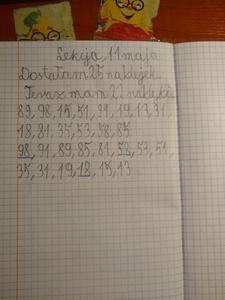 Lekcja, 11 maja
Dostałam 25 naklejek.
Teraz mam 27 naklejki
89, 98, 15, 51, 91, 19, 13, 31,
18, 81, 35, 53, 58, 85
98, 91, 89, 85, 81, 58, 53, 51,
35, 31, 19, 18, 15, 13